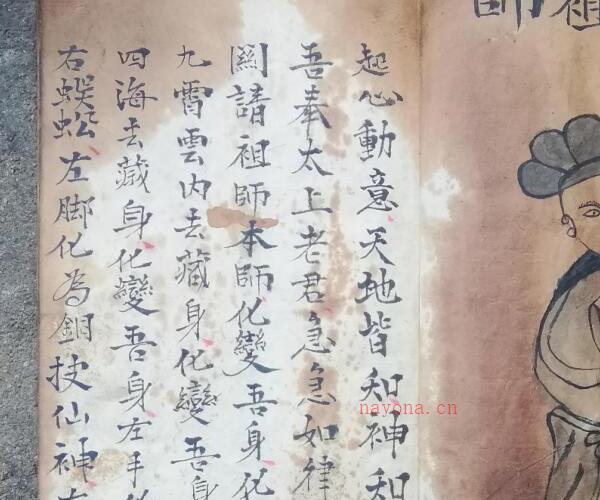 祖師
起心動意天地皆知神知
吾奉太上老君急急如律
関請祖師本師化變吾身化
九霄雲內去藏身化變吾身
四海去藏身化變吾身左手
右蜈蚣左脚化為銅 仙神
nayona.cn